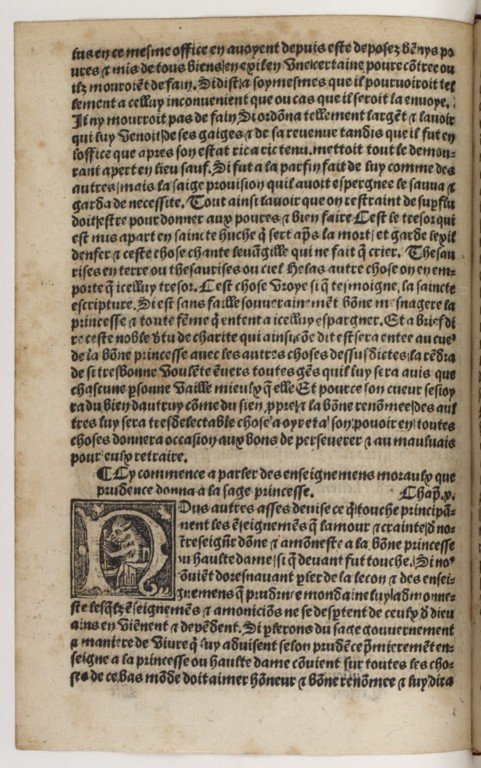 lus en ce mesme office en avoyent depuis este deposez bānys po
ures ⁊ mis de tous biens/en exil en vne certaine poure cōtree ou
ilz mouroiēt de fain. Si dist a soy mesmes que il pourvoiroit tel
lement a celluy inconvenient que ou cas que il seroit la envoye.
Il ny mourroit pas de fain Si ordōna tellement largēt ⁊ lavoir
qui luy Venoit de ses gaiges ⁊ de sa revenue tandis que il fut en
loffice que apres son estat ric a ric tenu. mettoit tout le demou-
rant apert en lieu sauf. Si fut a la parfin fait de luy comme des
autres/mais la saige provision quil avoit espergnee le sauva ⁊
garda de necessite. Tout ainsi lavoir que on restraint de supflu
doit estre pour donner aux poures ⁊ bien faire Cest le tresor qui
est mis apart en saincte huche q̄ sert aps̄ la mort/et garde lexil
denfer ⁊ ceste chose chante levāgille qui ne fait q̄ crier. Thesau
rises en terre ou thesaurises ou ciel Helas autre chose on en em-
porte q̄ icelluy tresor. Cest chose Vroye si q̄ tesmoigne, la saincte
escripture. Si est sans faille souverainemēt bōne mesnagere la
princesse ⁊ toute fēme q̄ entent a icelluy espargner. Et a brief di
re ceste noble v̄tu de charite qui ainsi cōe dit est sera entee au cue
de la bōne princesse avec les autres choses dessusdictes/la rēdra
de si tresbonne Voulēte ēvers toutes gēs quil luy sera avis que
chascune psonne Vaille mieulx q̄ elle Et pource son cueur sesioy
ra du bien dautruy cōme du sien ppre/⁊ la bōne renōmee/des aul
tres luy sera tresdelectable chose a oyr et a son povoir en toutes
choses donnera occasion aux bons de perseverer ⁊ au mauluais
pour eulx retraire.
¶ Cy commence a parler des enseignemens moraulx que
prudence donna a la sage princesse. Chap. x.
Ous autres asses devise ce q̄ touche principā-
nent les ēseignemēs q̄ lamour ⁊ crainte d no-
tre seignr dōne ⁊ amōneste a la bōne princesse
ou haulte dame/si q̄ devant fut touche. Si no⁹
cōuiēt doresnavant pler de la lecon ⁊ des ensei-
gnemens q̄ prudence mondaine luy admonne-
ste lesq̄lz ēseignemēs ⁊ amonicions ne se desptent de ceulx d dieu
ains en viēnent ⁊ depēdent. Si plerons du sage gouvernement
⁊ maniere de vivre q̄ luy aduisent selon prudēce p̄mieremēt en-
seigne a la princesse ou haulte dame cōvient sur toutes les cho-
ses de ce bas mōde doit aimer hōneur ⁊ bōne renōmee ⁊ luy dira